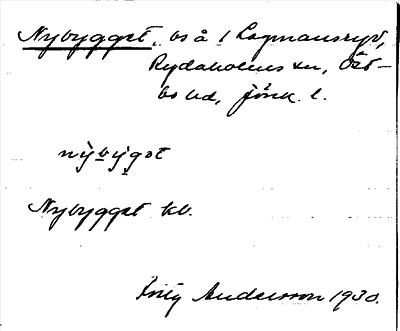 Nybygget, bs å 1 Lagmansryd,
Rydaholms sn, Öst-
bo hd, Jönk. l.
nỳbỳgət
Nybygget kb.
Fritz Andersson 1930.